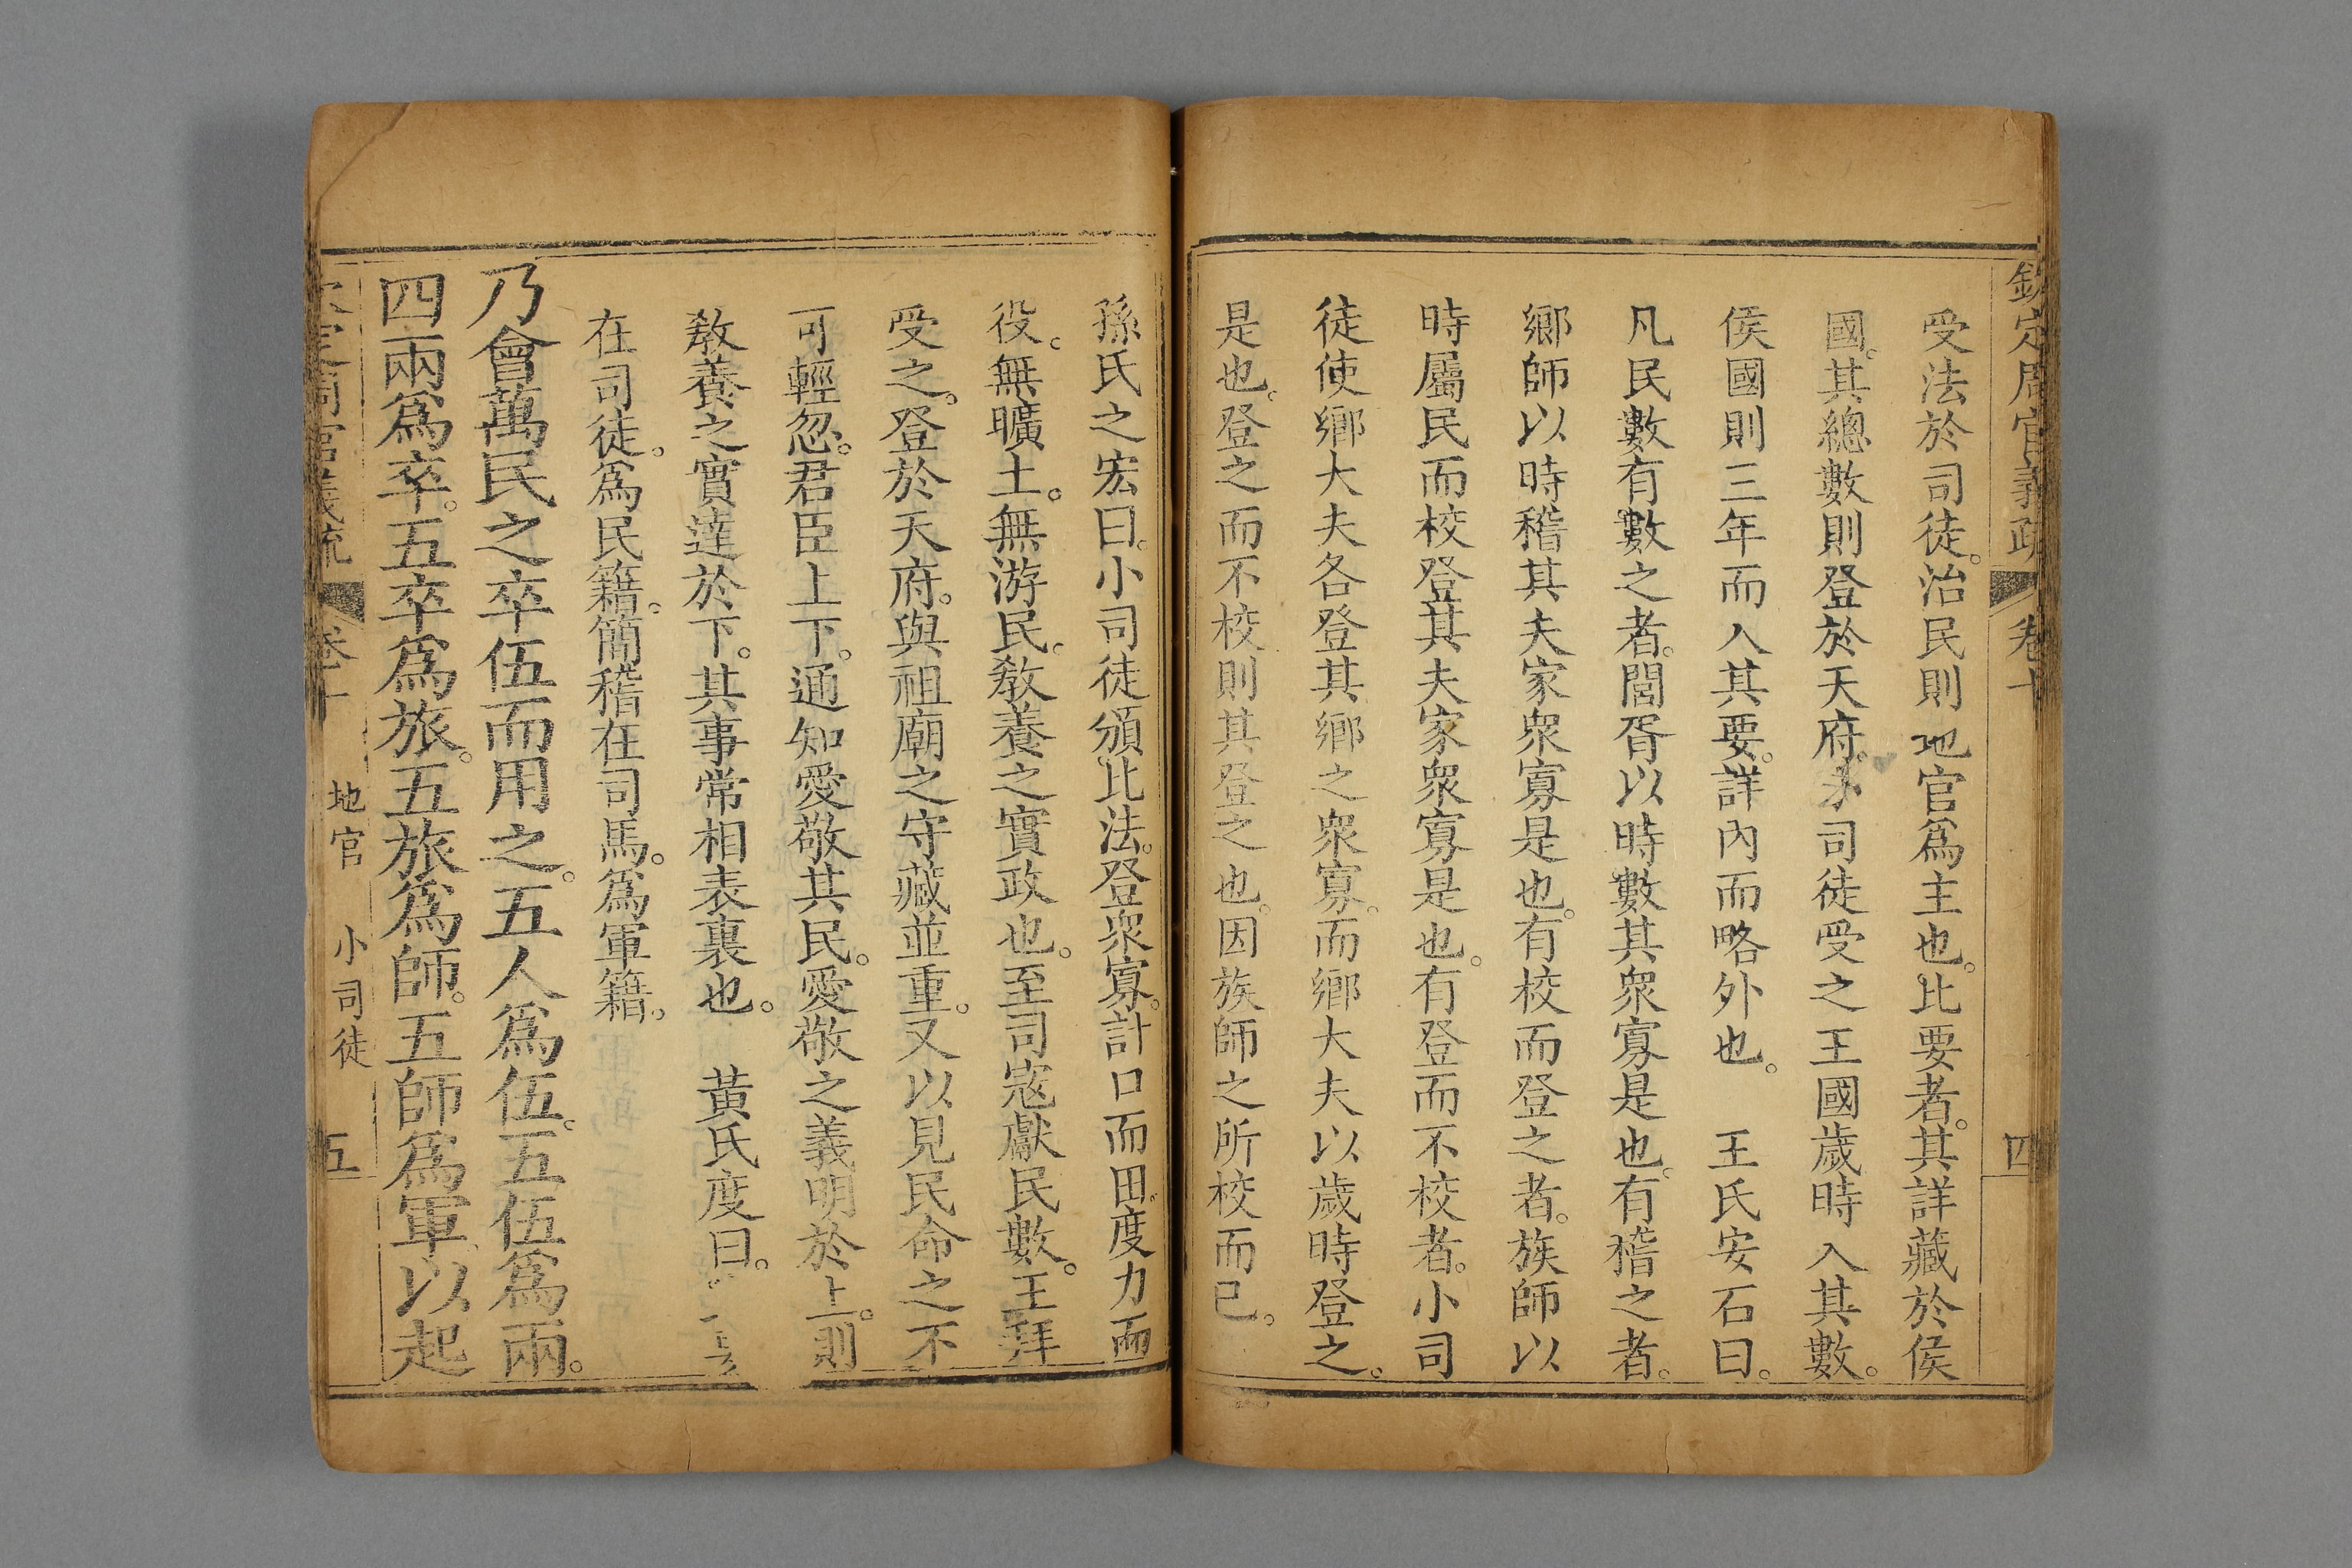 欽定周官義疏 卷十 四
受法於司徒。治民則地官爲主也。比要者。其詳藏於侯
國。其總數則登於天府。司徒受之王國歲時入其數。
侯國則三年而入其要。詳內而略外也。 王氏安石曰。
凡民數有數之者。閭胥以時數其衆寡是也。有稽之者。
鄉師以時稽其夫家衆寡是也。有校而登之者。族師以
時屬民而校登其夫家衆寡是也。有登而不校者。小司
徒使鄉大夫各登其鄉之衆寡。而鄉大夫以歲時登之。
是也。登之而不校則其登之也。因族師之所校而已。
孫氏之宏曰。小司徒頒比法。登衆寡。計口而田。度力而
役。無曠土。無游民。敎養之實政也。至司寇獻民數。王拜
受之。登於天府。與祖廟之守藏並重。又以見民命之不
可輕忽。君臣上下。通知愛敬其民。愛敬之義明於上。則
敎養之實達於下。其事常相表裏也。 黃氏度曰。
在司徒。爲民籍。簡稽在司馬。爲軍籍。
乃會萬民之卒伍而用之。五人爲伍。五伍爲兩。
四兩爲卒。五卒爲旅。五旅爲師。五師爲軍。以起
欽定周官義疏 卷十 地官 小司徒 五